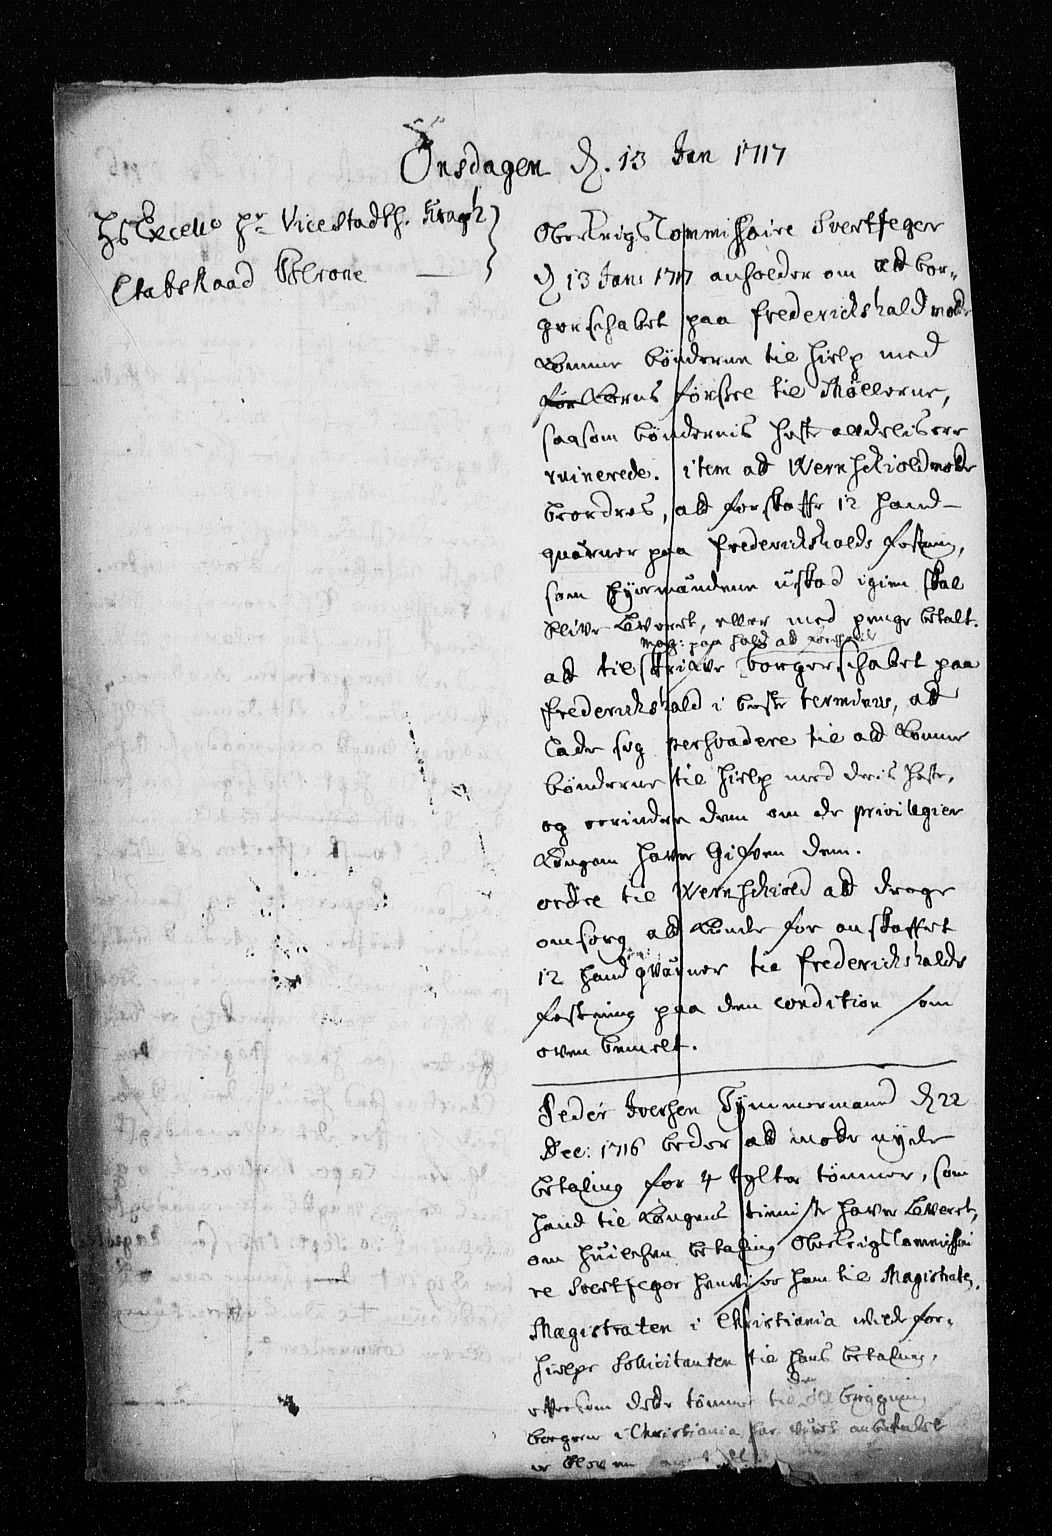 Onsdagen d. 13 Jan 1717
Hs Excello hr Vicestadth. Kragh
Etatsraad
OberKrigsCommissaire Svertfeger
d 13 Jan: 1717 anholder om att bor-
gerschabet paa Frederickshald motte
komme bønderne til hielp med
Korns førsel til Møllerne,
saasom bøndernis heste aldelis ere
ruinerede. item att Wernschiold motte
beordres, att forskaffe 12 hand-
qværner paa Frederickshalds festning,
som Eyermændene uskad igien skal
blive leveret, eller med penge betalt.
Mag: paa hald at
att tilskrive borgerschabet paa
Frederickshald i beste terminis, att
lade sig persvadere til att komme
bønderne til hielp med deris heste,
og erindre dem om de privilegier
Kongen haver Gifven dem.
ordre til Wernschiold att drage
omsorg att kunde for anskaffet
12 hand qværner til Frederickshalds
festning paa den condition som
oven bemelt.
Peder Iversen Tymmermand d 22
Dec: 1716 beder att motte nyde
betaling for 4 tylter tømmer, som
hand til Kongens tieniste haver leveret,
om hvilchen betaling OberKrigsCommissai
re Svertfeger henviser ham til Magistraten.
Magistraten i Christiania vilde for-
hielpe Sollicitanten til hans betaling,
eftersom dette tømmer til den bygning
borgerne i Christiania har været anbefalet